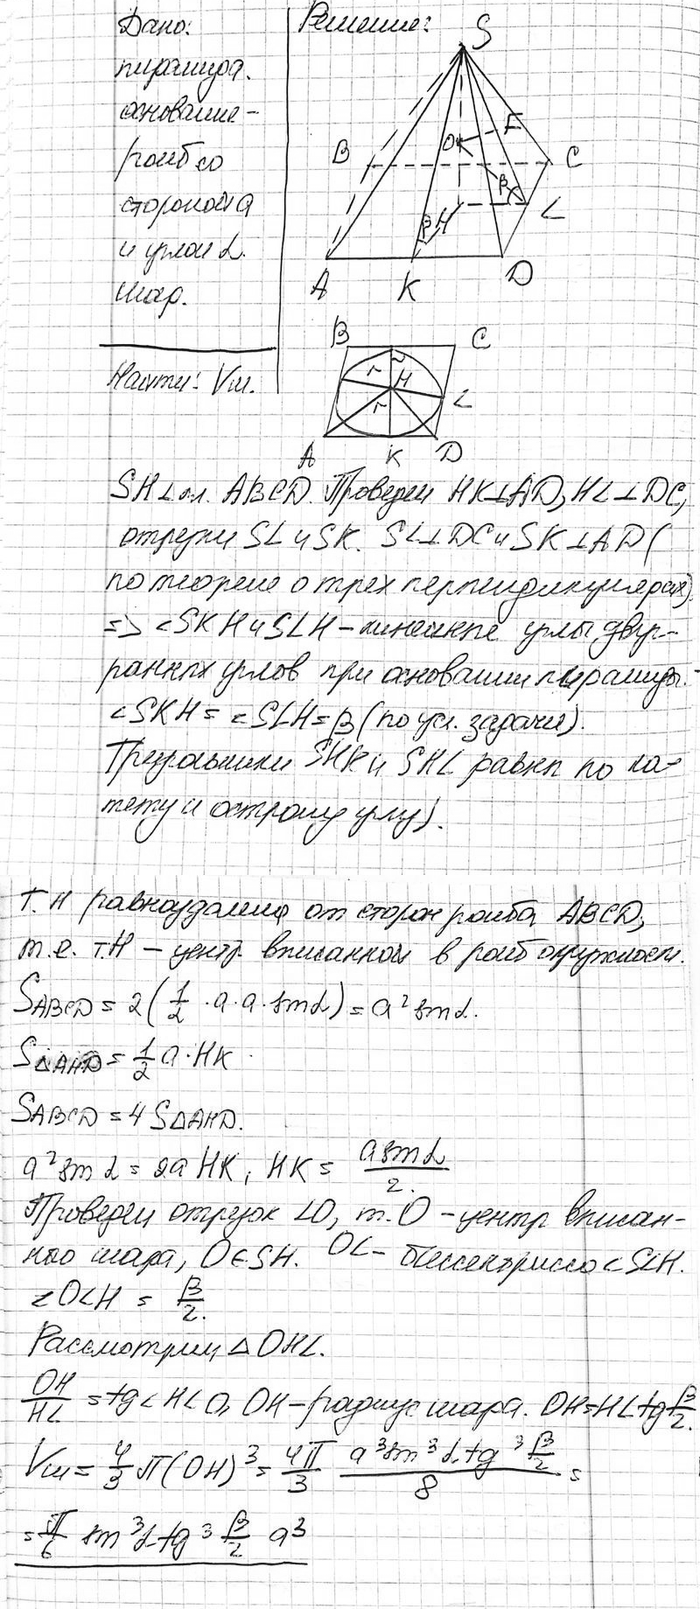 Дано:
пирамида.
основание-
ромб со
стороной a
и углом α.
шар.
Найти: Vш.
Решение:
S
O
E
B
C
β
L
H
β
A
K
D
B
C
r
H
r
L
A
K
D
SH⊥пл. ABCD. Проведем HK⊥AD, HL⊥DC,
отрезки SL и SK. SL⊥DC и SK⊥AD (
по теореме о трех перпендикулярах)
=> ∠SKH и ∠SLH - линейные углы двуг-
ранных углов при основании пирамиды.
∠SKH = ∠SLH = β (по усл. задачи).
Треугольники SHK и SHL равны по ка-
тету и острому углу).
Т.H равноудалена от сторон ромба ABCD,
т.е. т.H - центр вписанной в ромб окружности.
S ABCD = 2(1/2 · a · a · sin α) = a² sin α.
S ΔAHD = 1/2 a · HK
S ABCD = 4 S ΔAHD.
a² sin α = 2a HK, HK = a sin α / 2.
Проведем отрезок LO, т.O - центр вписан-
ного шара, O∈SH. OL - биссектрисса ∠SLH.
∠OLH = β/2.
Рассмотрим ΔOHL.
OH/HL = tg ∠HLO, OH - радиус шара. OH = HL tg β/2.
Vш = 4/3 π(OH)³ = 4π/3 a³ sin³ α tg³ β/2 / 8 =
= π/6 sin³ α tg³ β/2 a³